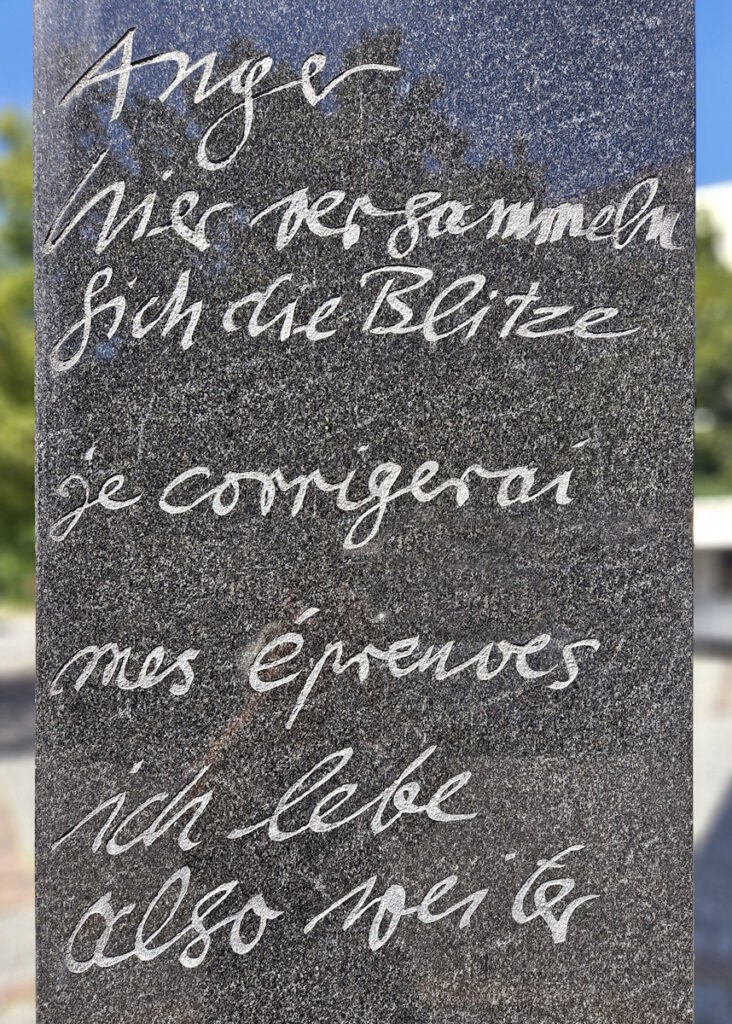 Ange
hier versammeln
sich die Blitze
je corrigerai
mes épreuves
ich lebe
also weiter